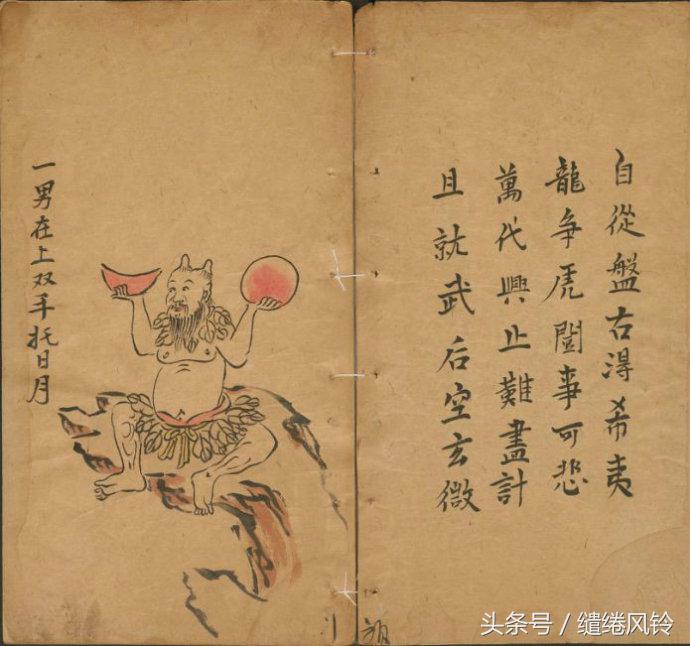 自從盤古淂希夷
龍争虎鬪事可悲
萬代興止難盡計
且就武后空玄微
一男在上双手托日月
头条号 / 缱绻风铃